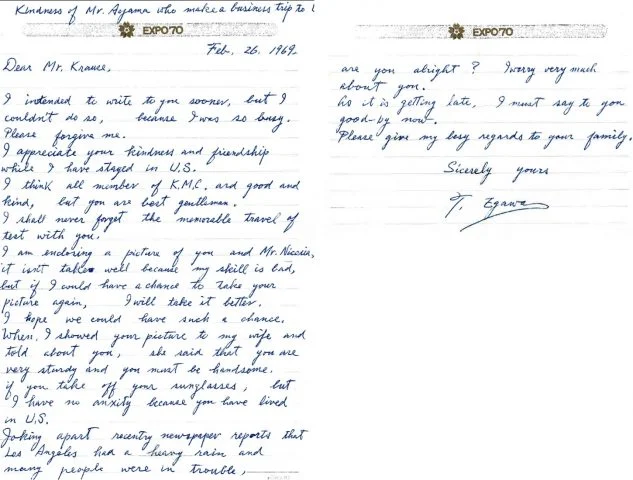 Kindness of Mr. Aoyama who make a business trip to
EXPO'70
Feb. 26. 1969.
Dear Mr. Krause,
I intended to write to you sooner, but I
couldn't do so, because I was so busy.
Please forgive me.
I appreciate your kindness and friendship
while I have stayed in U.S.
I think all member of K.M.C. are good and
kind, but you are best gentleman.
I shall never forget the memorable travel of
test with you.
I am enclosing a picture of you and Mr.
it isn't taken well because my skill is bad,
but if I could have a chance to take your
picture again, I will take it better.
I hope we could have such a chance.
When I showed your picture to my wife and
told about you, she said that you are
very sturdy and you must be handsome.
if you take off your sunglasses, but
I have no anxity because you have lived
in U.S.
Joking apart recently newspaper reports that
Los Angeles had a heavy rain and
many people were in trouble,
EXPO'70
are you alright? I worry very much
about you.
As it is getting late, I must say to you
good-by now.
Please give my besy regards to your family.
Sicerely yours
T. Egawa